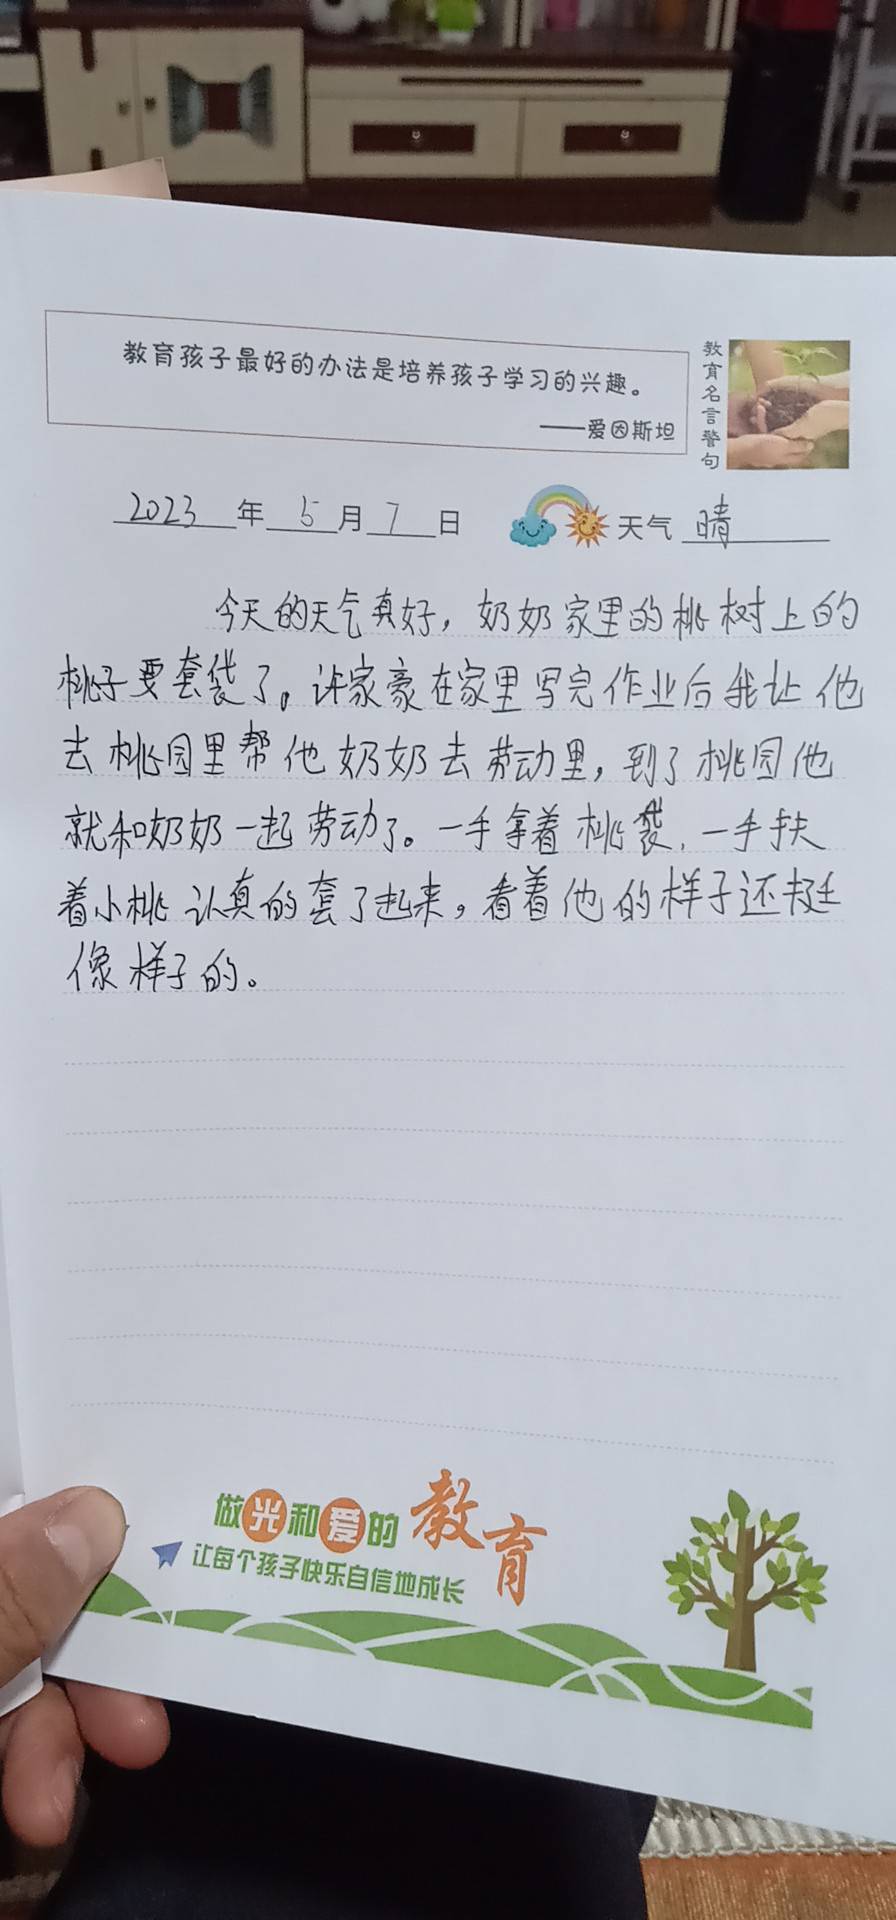 教育孩子最好的办法是培养孩子学习的兴趣。
——爱因斯坦
教育名言警句
2023年5月7日 天气 晴
今天的天气真好，奶奶家里的桃树上的
桃子要套袋了。许家豪在家里写完作业后我让他
去桃园里帮他奶奶去劳动里，到了桃园他
就和奶奶一起劳动了。一手拿着桃袋，一手扶
着小桃认真的套了起来，看着他的样子还挺
像样子的。
做光和爱的教育
让每个孩子快乐自信地成长